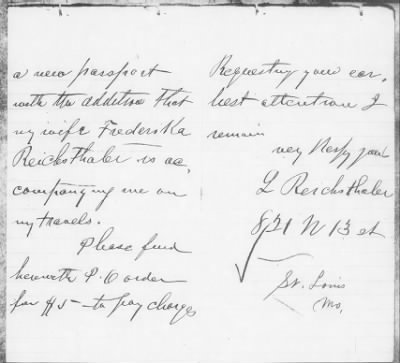 a new passport
with the addition that
my wife Frederika
Reichsthaler is ac,
companying me on
my travels.
Please find
herewith P. O order
for $5 - to pay charges
Requesting your ear,
liest attention I
remain
very Respy yours
L Reichsthaler
821 N 13 st
St. Louis
Mo.